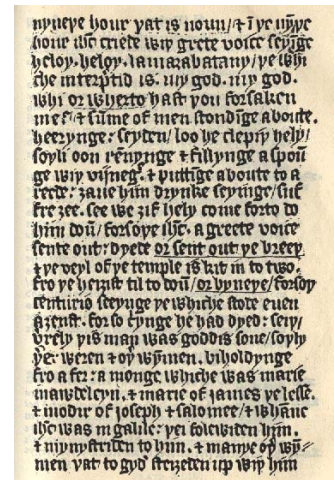 nyneye hour yat is noun/ ⁊ ī ye nȳye
hour ih̄c criede wiþ grete voice seyīge
heloy. heloy. lamazabatany/ ye whi
che interp̄tid is. my god. my god.
whi or wherto hast you forsaken
me? / ⁊ sūme of men stondīge aboute.
heerynge: seyden/ loo he clepiþ hely/
soyli oon rēnynge ⁊ fillynge a spoū
ge wiþ vyneg̉. ⁊ puttīge aboute to a
reede: ȝaue him drynke seyinge/ suf
fre ȝee. see we ȝif hely come forto do
him doū/ forsoye ih̄c. a greete voice
sente out: dyede or sent out ye breeþ
⁊ ye veyl of ye temple is kit in to two.
fro ye heiȝist til to doū/ or byneye/ forsoy
centurio seeynge ye whiche stode euen
aȝenst. for so cr̄ynge he had dyed: seiy/
verely yis man was goddis sone/ soyly
yer weren ⁊ oy wȳmen. biholdynge
fro a fer: a monge whiche was marie
mawdeleyn. ⁊ marie of iames ye lesse.
⁊ modir of ioseph ⁊ salomee/ ⁊ whāne
ih̄c was in galile: yei folewiden hȳm.
⁊ mynystriden to hīm. ⁊ manye oy wȳ-
men yat to gyd̉ steiȝeden up wiþ him